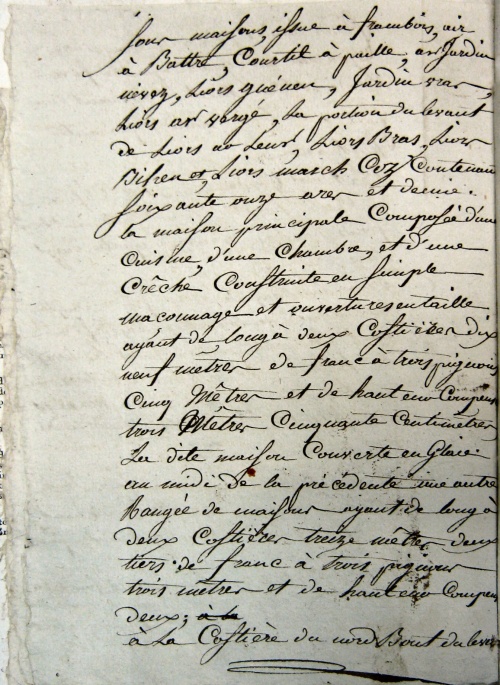 sous maisons, issue à frambois, air
à Battre, Courtil à paille, ar Jardin
nevez, Liors quéneu, Jardin vras,
Liors ar vergé, La portion du levant
de Liors ar Leur, Liors Bras, Liors
Bihen et, Liors march Coz, Contenan
soixante onze ares et demie.
la maison principale Composée d'une
Cuisine, d'une Chambre, et d'une
Crêche Construite en simple
maconnage et ouvertures en taille
ayant de long à deux Costières dix
neuf mètres de franc à trois pignons
Cinq Mêtres et de hauteur Compens
trois Mêtres Cinquante Centimètres
La dite maison Couverte en Glaie.
au midi de la précédente une autre
Rangée de maisons ayant de long à
deux Costières treize mètres deux
tiers de franc à trois pignons
trois mètres et de hauteur Compens
deux; à la
à La Costière du nord Bout du levan